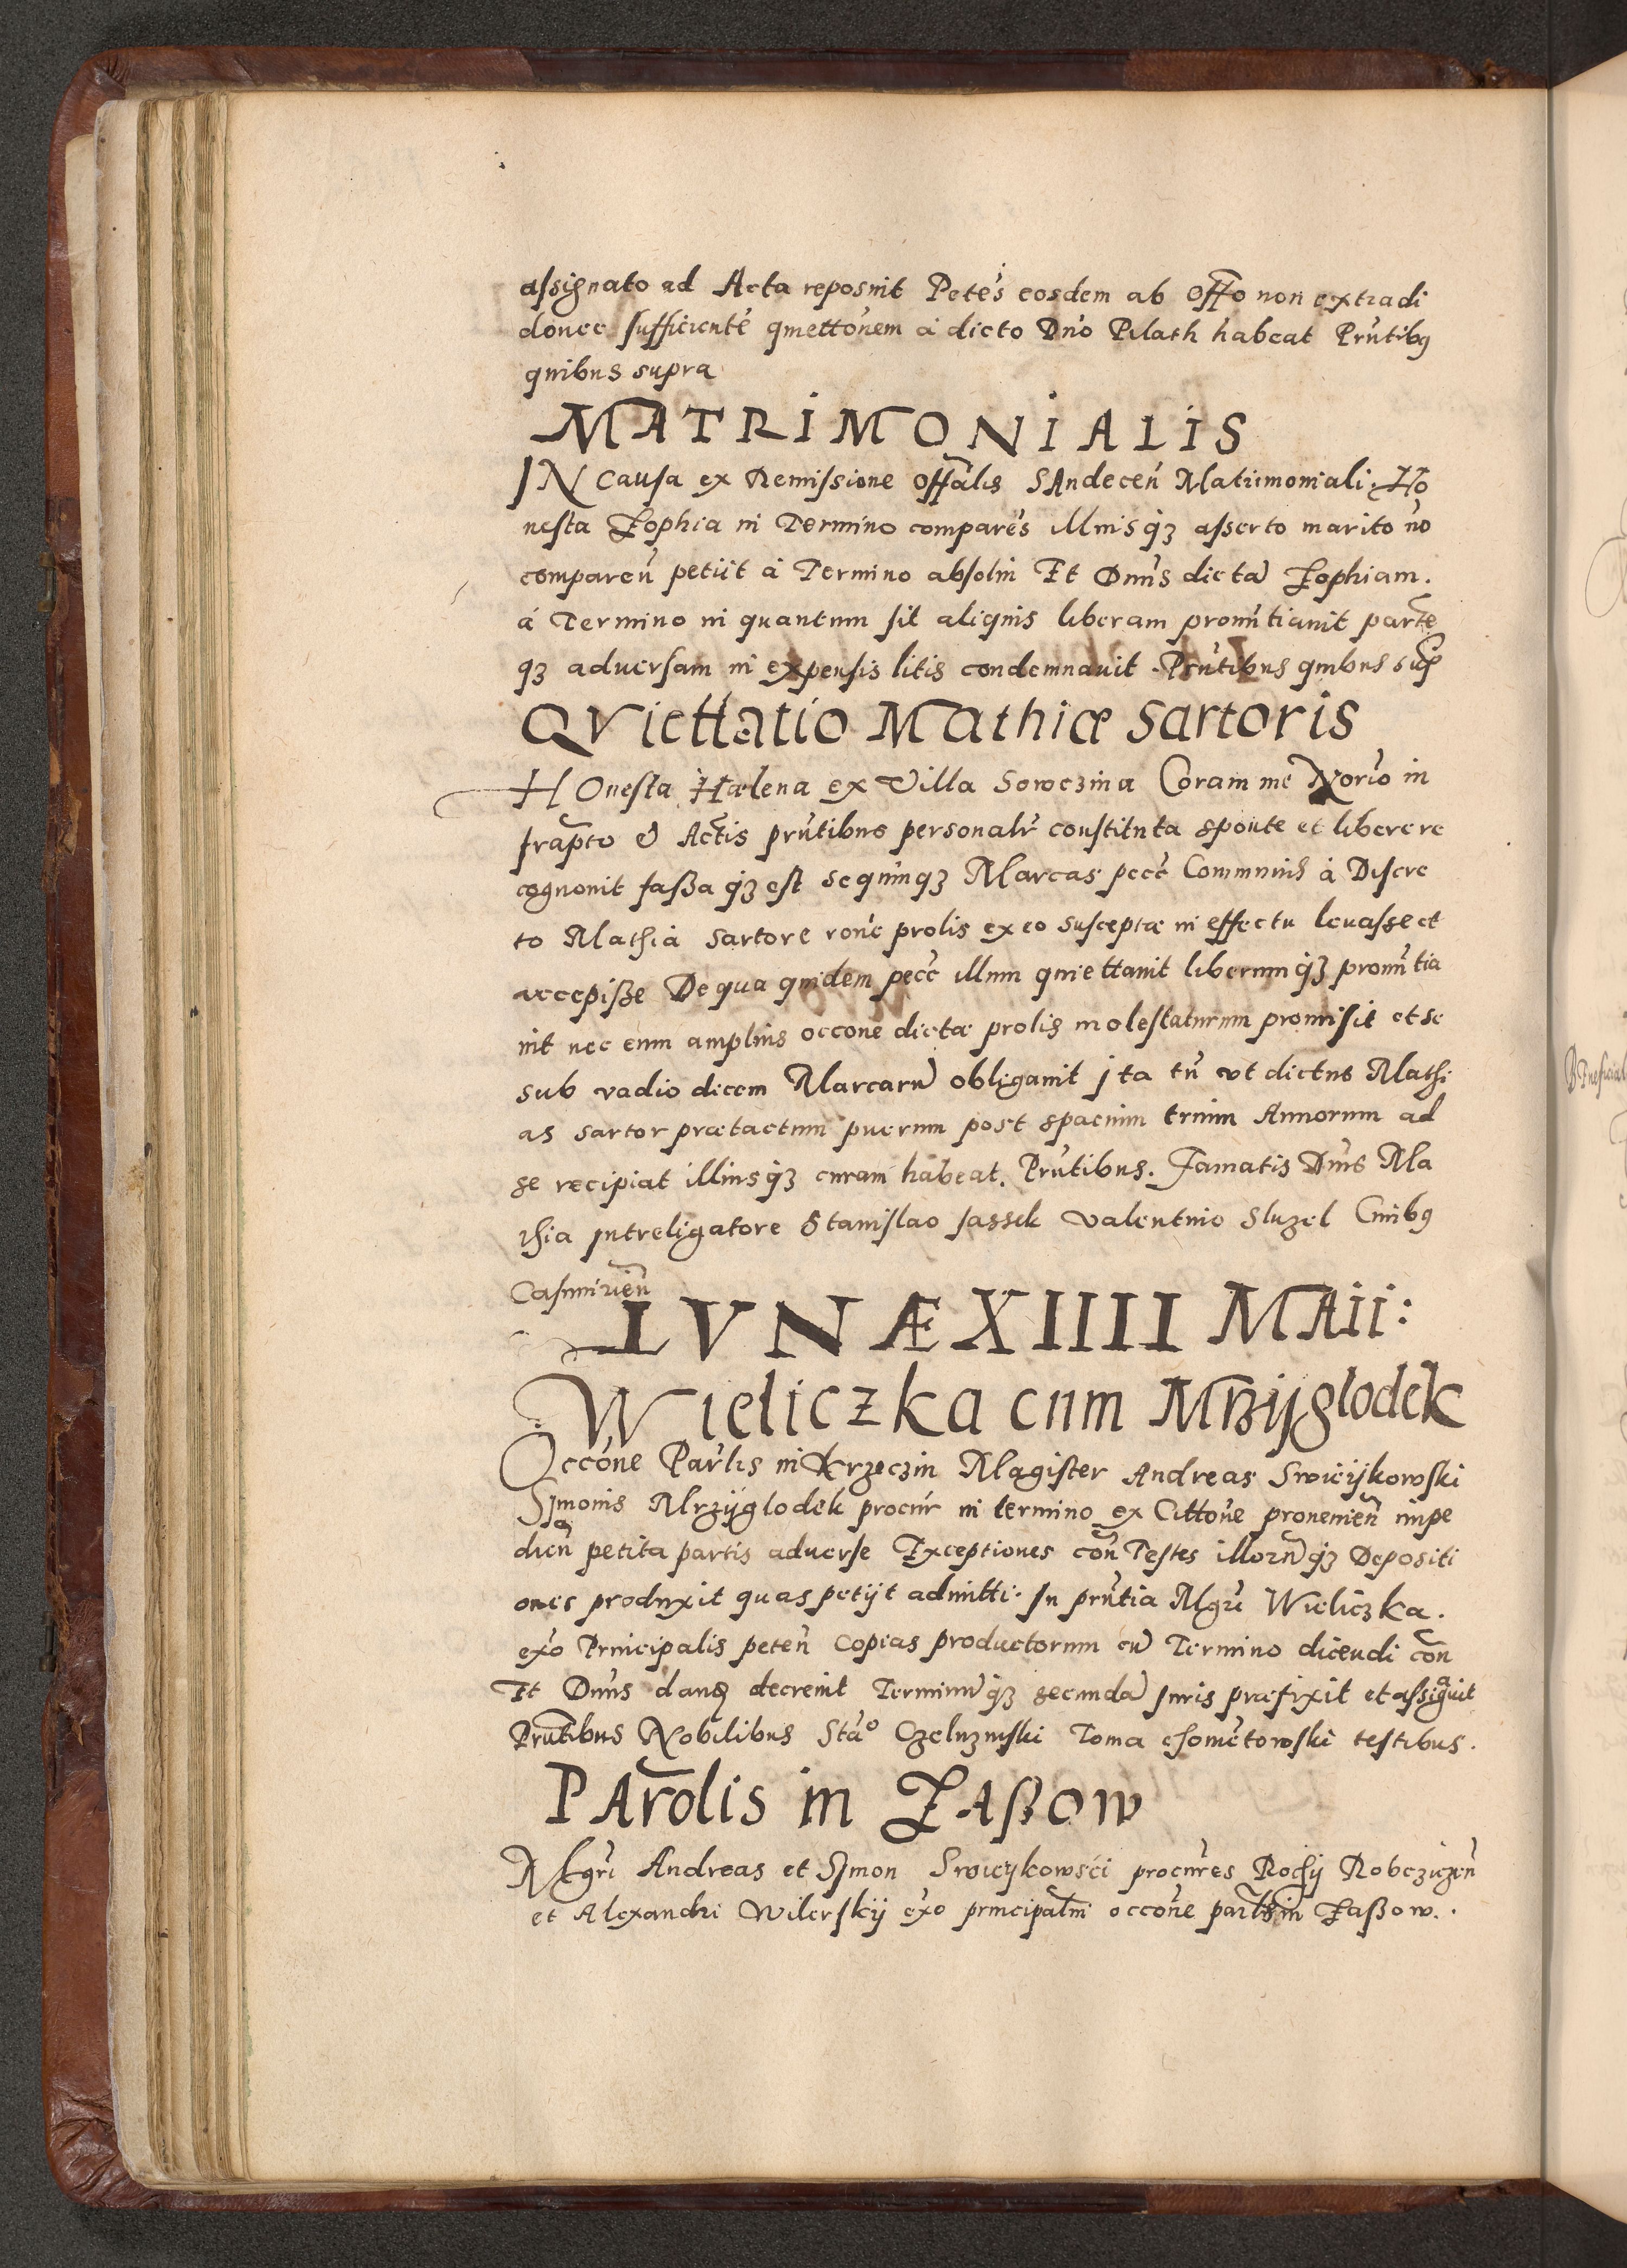 assignato ad Acta reposuit Peteń eosdem ab Offo non extradi
donec sufficientē quiettōnem à dicto Dno Pilath habeat Prntibus
quibus supra
MATRIMONIALIS
IN Causa ex Remissione Offalis SAndeceń Matrimoniali. Ho
nesta Zophia in Termino comparēs illiusq3 asserto marito nō
compareń petiit à Termino absolui Et Dnus dictā Zophiam.
á Termino in quantum sit aliquis liberam pronūtiauit partē
q3 aduersam in expensis litis condemnauit. Prntibus quibus sup
QViettatio Mathiæ Sartoris
HOnesta Hælena ex Villa Sowczina Coram me Norio in
frapto & Actis prntibus personalr constituta sponte et libere re
cognouit faßa q3 est se quinq3 Marcas pecć Communis à Discre
to Mathia Sartore ronē prolis ex eo susceptæ in effectu leuasse et
accepiße De qua quidem pecć illum quiettauit liberum q3 pronūtia
uit nec eum amplius occone dictæ prolis molestaturum promisit et se
sub vadio decem Marcarū obligauit ita tń vt dictus Mathi
as Sartor prætactum puerum post spacium trium Annorum ad
se recipiat illiusq3 curam habeat. Prntibus. Famatis Dnis Ma
thia Intreligatore Stanislao Jassek Valentino Sluzel Ciuibus
Casimirień
LVNÆ XIIII MAii:
Wieliczka cum Mrzÿglodek
Occōne Parlis in Krzeczin Magister Andreas Swiczÿkowski
Sÿmonis Mrzÿglodek procur in termino ex Cittone prouenień impe
dień petita partis aduerse Exceptiones coń Testes illorū q3 Depositi
ones produxit quas petijt admitti. In prntia Mgri Wieliczka.
exo Principalis peteń Copias productorum cū Termino dicendi coń
Et Dnus dand decreuit Terminū q3 secundā Iuris præfixit et assignauit
Prntibus Nobilibus Stao Czeluzniski Toma chometowski testibus.
PArolis in ZAßow
Mgri Andreas et Sÿmon Swiczÿkowsci procures Rochij
et Alexandri Wilerskij exo principalin occone parlis in Zaßow..